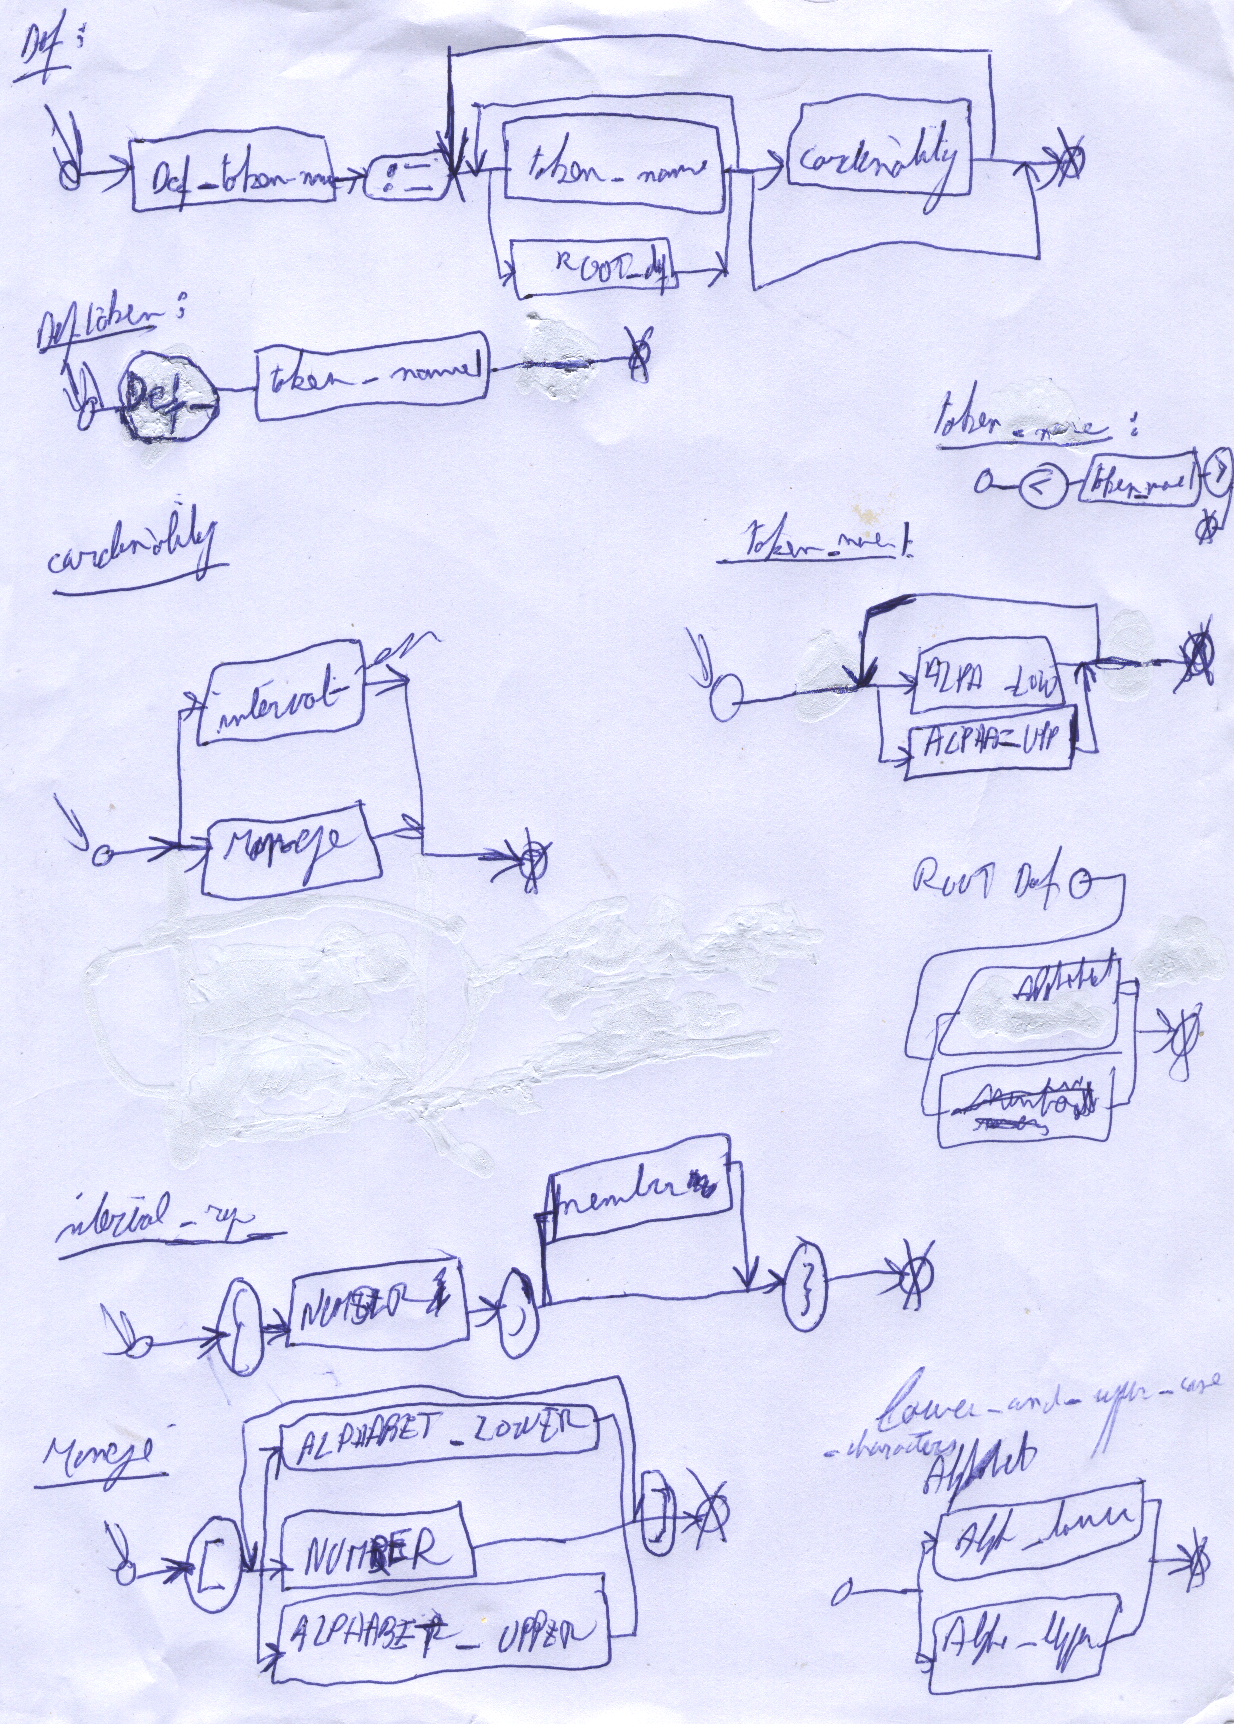 Def :
Def_token_na
:=
token_name
cardenality
ROOT_def
Def_token :
Def_
token_name1
token_name :
<
token_name1
>
cardenality
token_name1
interval
ALPA_LOW
ALPHA_UPP
ROOT Def
Alphabet
interval_rep
{
NUMBER
,
number
}
[
ALPHABET_LOWER
NUMBER
ALPHABET_UPPER
]
lower_and_upper_case
_characters
Alphabet
Alph_lower
Alph_Upper